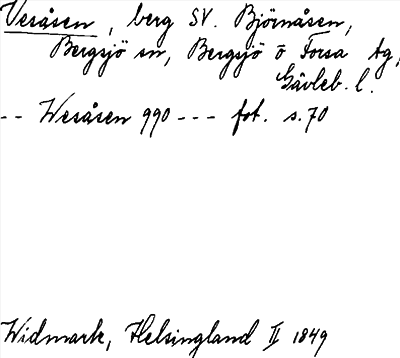 Vesåsen, berg SV. Björnåsen,
Bergsjö sn, Bergsjö o Forsa tg,
Gävleb. l.
-- Wesåsen 990 --- fot. s.70
Widmark, Helsingland II 1849